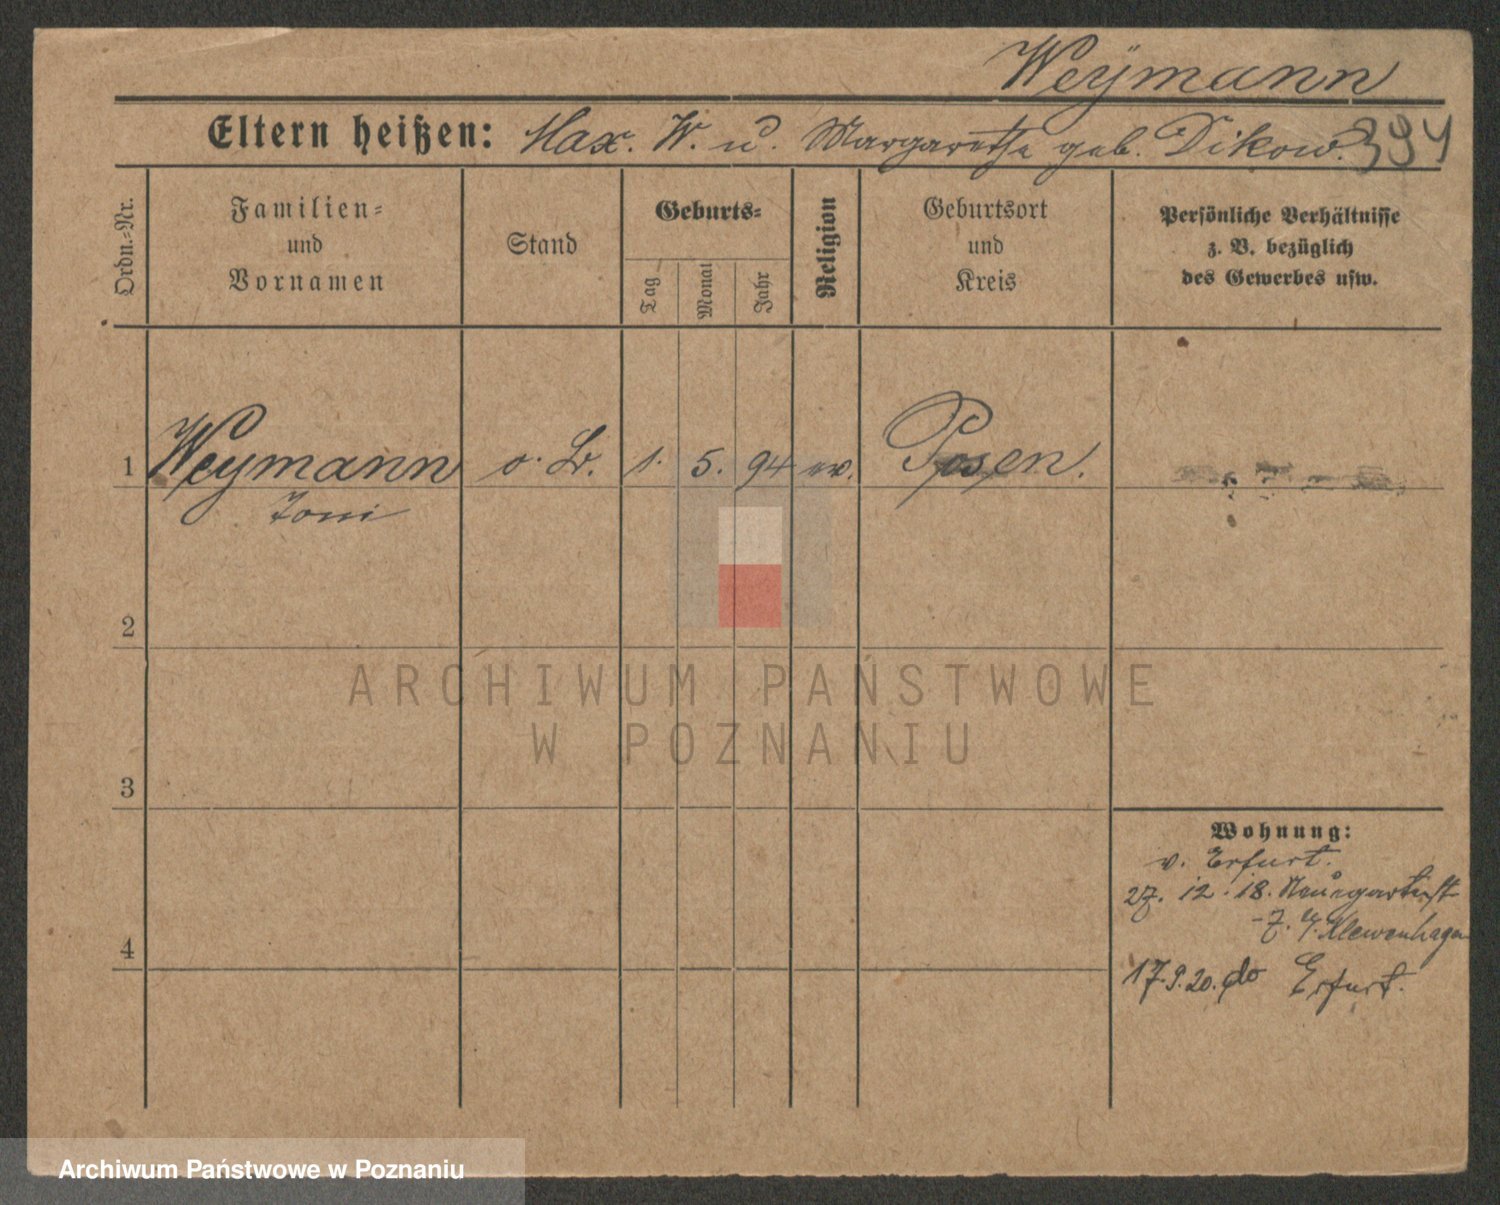 Weÿmann
Eltern heißen: Max. W. u. Margarethe geb. Dikow. 394
Ordn.-Nr.
Familien-
und
Vornamen
Stand
Geburts-
Tag
Monat
Jahr
Religion
Geburtsort
und
Kreis
Persönliche Verhältnisse
z. B. bezüglich
des Gewerbes usw.
1 Weymann o. Lr. 1. 5. 94 ev. Posen.
Toni
2
3
4
Wohnung:
v. Erfurt.
27. 12. 18.
7. Klewenhagen
17.9.20. do Erfurt.
ARCHIWUM PAŃSTWOWE
W POZNANIU
Archiwum Państwowe w Poznaniu